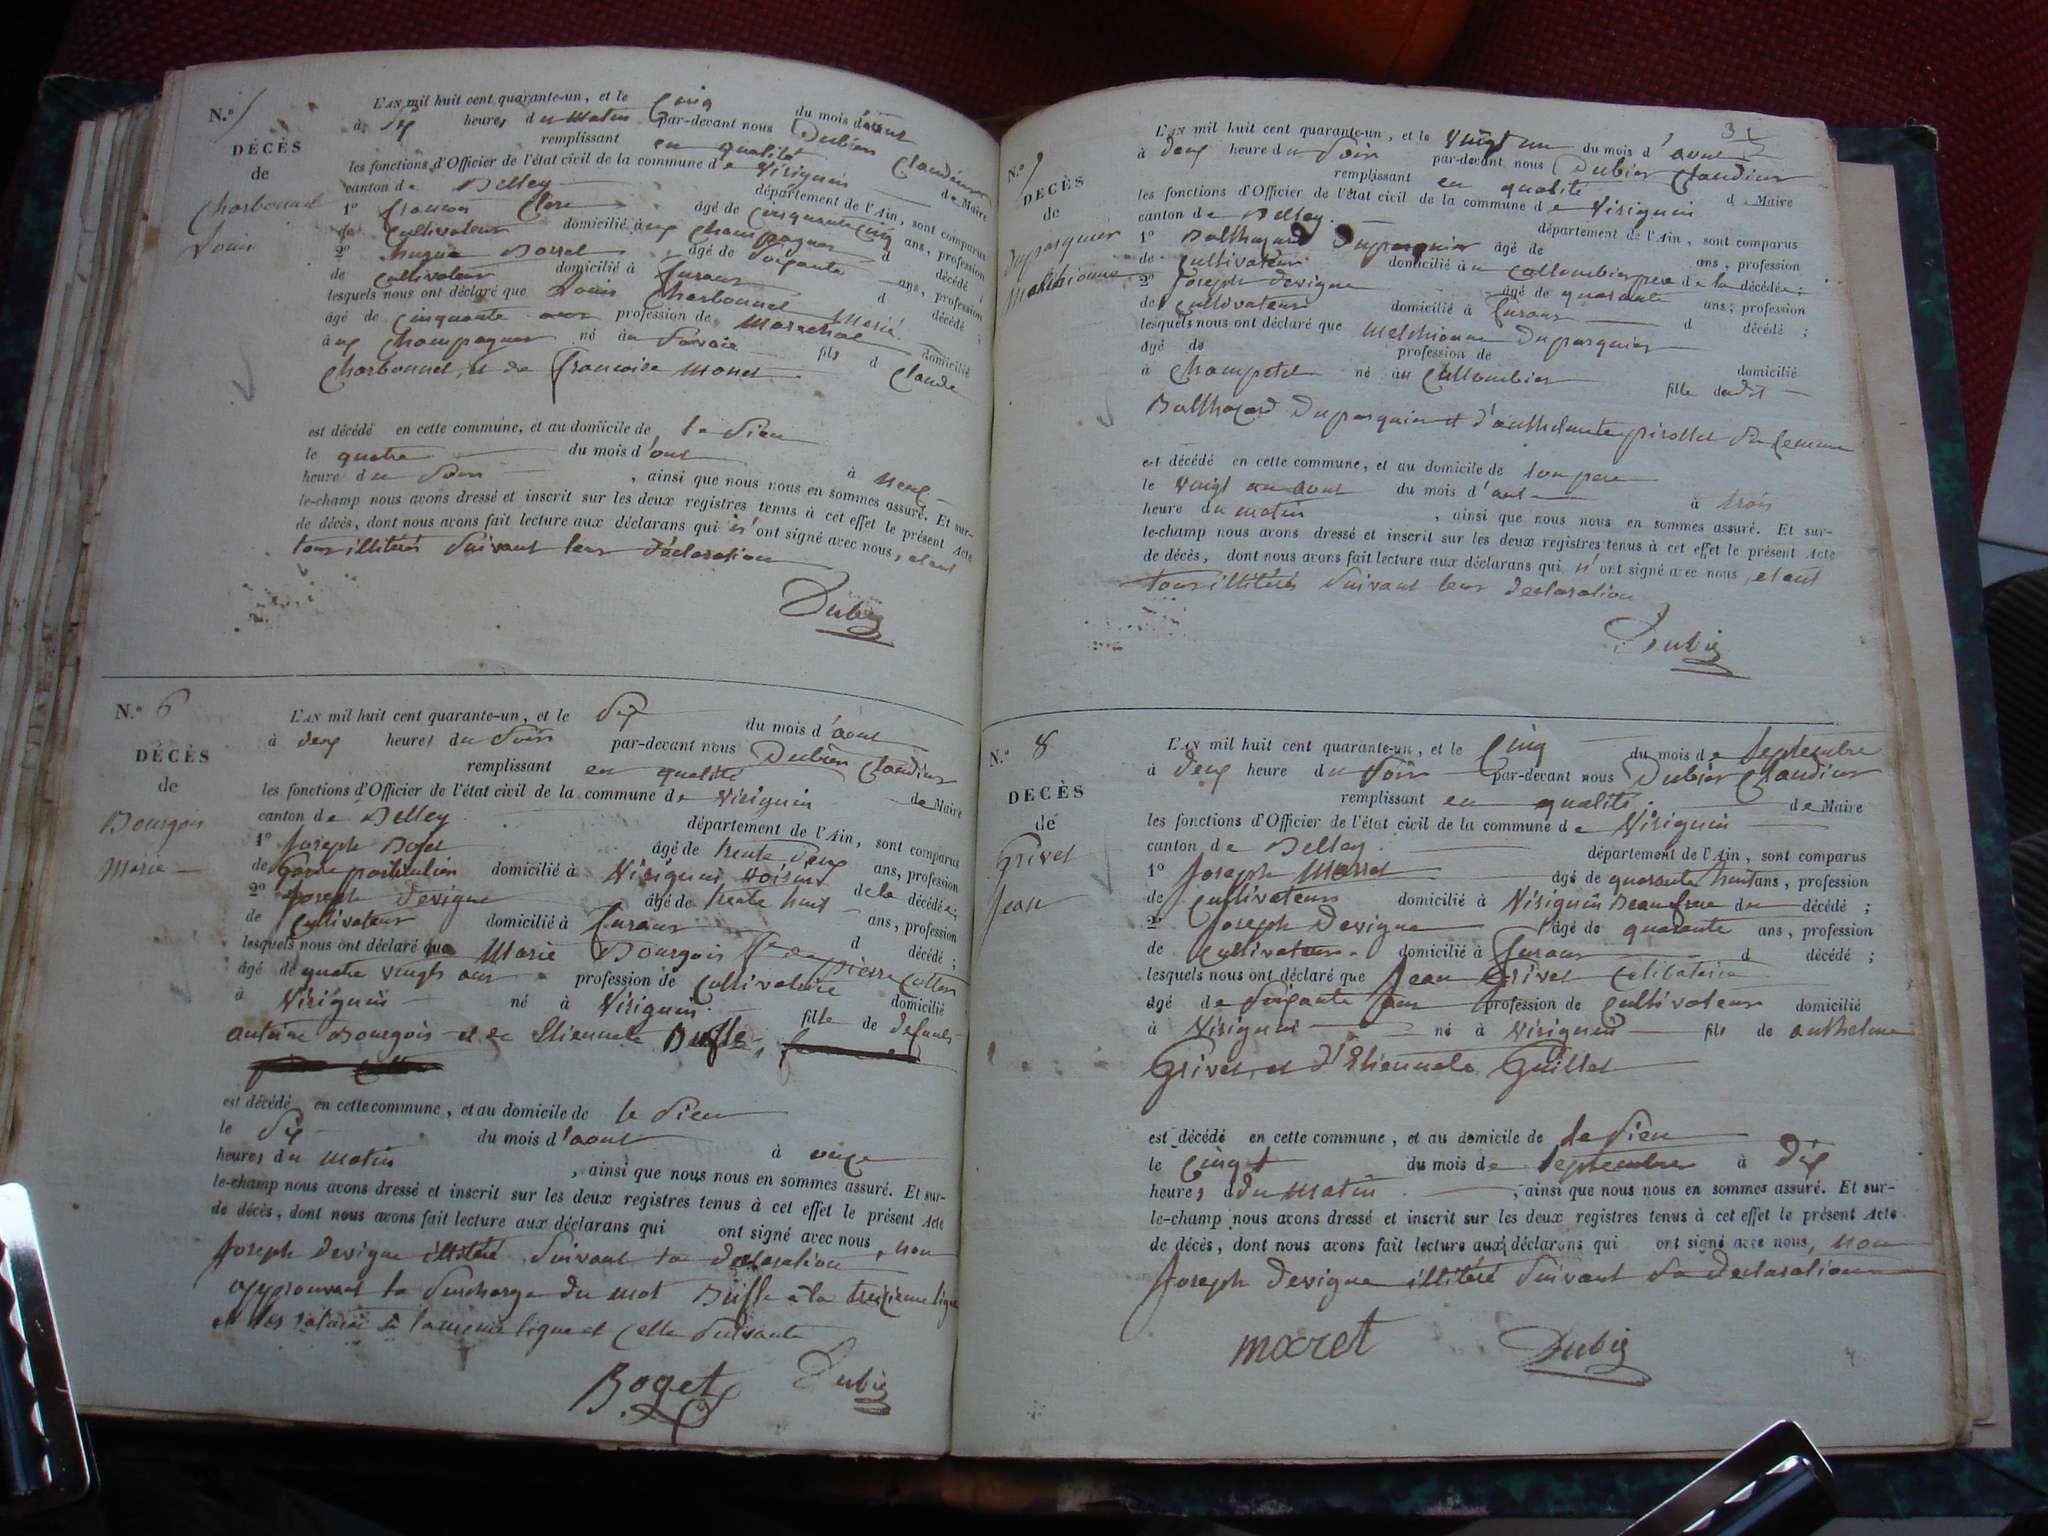 N.° 5
DÉCÈS
de
Charbonnel
Louis
L'AN mil huit cent quarante-un, et le Cinq du mois d'aout
à dix heures du matin par-devant nous Dubier Claudius
remplissant en qualité de Maire
les fonctions d'Officier de l'état civil de la commune de Virignin
canton de Belley département de l'Ain, sont comparus
1° François Clerc âgé de cinquante cinq ans, profession
de Cultivateur domicilié à ux Champagnes d décédé ;
2° âgé de soixante ans, profession
de Cultivateur domicilié à Luraux d décédé ;
lesquels nous ont déclaré que Louis Charbonnel Marié
âgé de cinquante ans profession de Marechal domicilié
à ux Champagnes né en Savoie fils d Claude
Charbonnel, et de françoise Monet
est décédé en cette commune, et au domicile de le Sien
le quatre du mois d'out à neuf
heure du Soir , ainsi que nous nous en sommes assuré. Et sur-
le-champ nous avons dressé et inscrit sur les deux registres tenus à cet effet le présent Acte
de décès, dont nous avons fait lecture aux déclarans qui n'ont signé avec nous, etant
tous illitérés Suivant leur déclaration
Dubier
N.° 6
DÉCÈS
de
Bourgois
Marie
L'AN mil huit cent quarante-un, et le dix du mois d'aout
à deux heures du Soir par-devant nous Dubier Claudius
remplissant en qualité de Maire
les fonctions d'Officier de l'état civil de la commune de Virignin
canton de Belley département de l'Ain, sont comparus
1° Joseph Boget âgé de trente deux ans, profession
de Garde particulier domicilié à Virignin Voisin de la décédée ;
2° Joseph Devigne âgé de trente huit ans, profession
de Cultivateur domicilié à Luraux d décédé ;
lesquels nous ont déclaré que Marie Bourgois fe de pierre Cotton
âgé de quatre vingts ans profession de Cultivatrice domicilié
à Virignin né à Virignin fille de defunts
antoine Bourgois et de Etiennete Buffle,
est décédé en cette commune, et au domicile de le Sien
le dix du mois d'aout à onze
heures du matin , ainsi que nous nous en sommes assuré. Et sur-
le-champ nous avons dressé et inscrit sur les deux registres tenus à cet effet le présent Acte
de décès, dont nous avons fait lecture aux déclarans qui ont signé avec nous, non
Joseph Devigne illitéré Suivant sa declaration
approuvant la Surcharge du mot Buffle à la treizieme ligne
et les à la meme ligne et celle Suivante
Boget Dubier
N.° 7
DÉCÈS
de
Dupasquier
Melchionne
L'AN mil huit cent quarante-un, et le Vingt un du mois d'aout
à deux heure du Soir par-devant nous Dubier Claudius
remplissant en qualité d Maire
les fonctions d'Officier de l'état civil de la commune de Virignin
canton de Belley département de l'Ain, sont comparus
1° Balthazard Dupasquier âgé de ans, profession
de Cultivateur domicilié à u Collombier pere de la décédée ;
2° Joseph Devigne âgé de quarante ans, profession
de Cultivateur domicilié à Luraux d décédé ;
lesquels nous ont déclaré que Melchionne Dupasquier
âgé de profession de domicilié
à né au Collombier fille dudit
Balthazard Dupasquier et d'anthelmette pirollet Sa femme
est décédé en cette commune, et au domicile de Son pere
le Vingt un aout du mois d'aout à trois
heure du matin , ainsi que nous nous en sommes assuré. Et sur-
le-champ nous avons dressé et inscrit sur les deux registres tenus à cet effet le présent Acte
de décès, dont nous avons fait lecture aux déclarans qui n'ont signé avec nous, etant
tous illitérés Suivant leur declaration
Dubier
N.° 8
DECÈS
de
Grivet
Jean
L'AN mil huit cent quarante-un, et le Cinq du mois de Septembre
à deux heure du Soir par-devant nous Dubier Claudius
remplissant en qualité de Maire
les fonctions d'Officier de l'état civil de la commune de Virignin
canton de Belley département de l'Ain, sont comparus
1° Joseph Marret âgé de quarante huit ans, profession
de Cultivateur domicilié à Virignin Beaufrere du décédé ;
2° Joseph Devigne âgé de quarante ans, profession
de Cultivateur domicilié à Luraux d décédé ;
lesquels nous ont déclaré que Jean Grivet Celibataire
âgé de Soixante ans profession de Cultivateur domicilié
à Virignin né à Virignin fils de anthelme
Grivet, et d'Etiennete Guillet
est décédé en cette commune, et au domicile de le Sien
le Cinq du mois de Septembre à dix
heures du Matin , ainsi que nous nous en sommes assuré. Et sur-
le-champ nous avons dressé et inscrit sur les deux registres tenus à cet effet le présent Acte
de décès, dont nous avons fait lecture aux déclarans qui ont signé avec nous, non
Joseph Devigne illitéré Suivant Sa declaration
maret Dubier